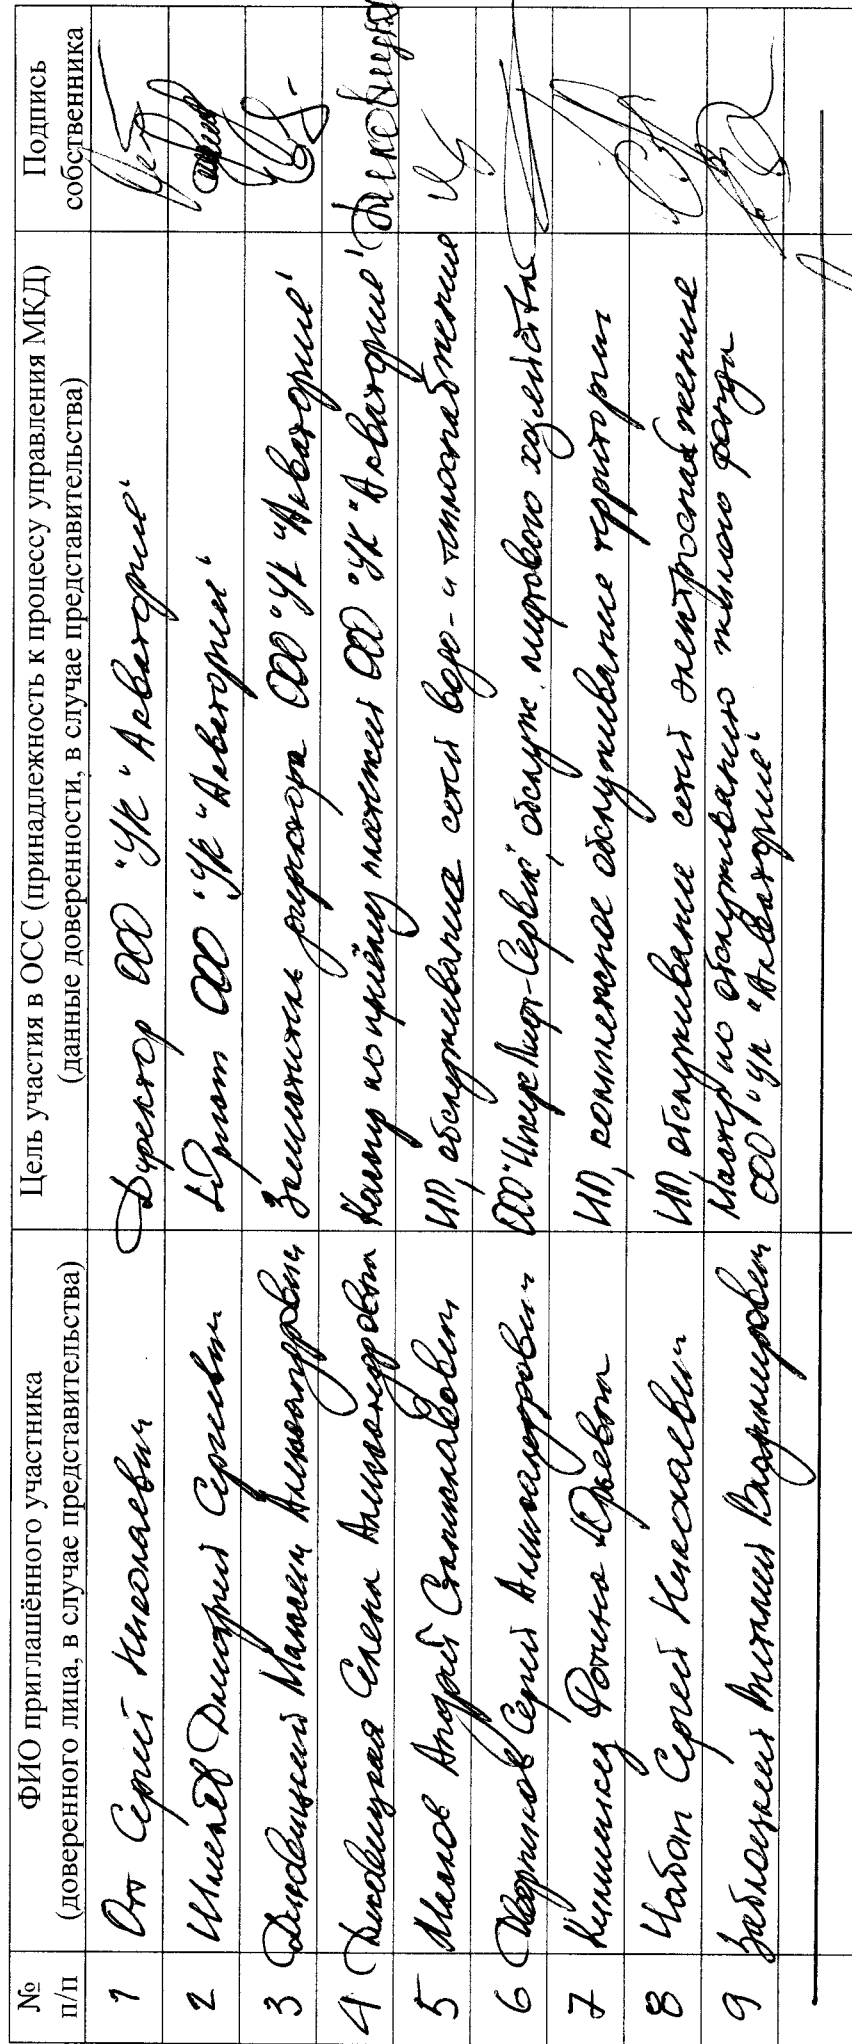 № п/п
ФИО приглашённого участника
(доверенного лица, в случае представительства)
Цель участия в ОСС (принадлежность к процессу управления МКД)
(данные доверенности, в случае представительства)
Подпись
собственника
1 Отт Сергей Николаевич Директор ООО "УК "Акватория"
2 Дмитрий Сергеевич Юрист ООО "УК "Акватория"
3 Максим Александрович Заместитель директора ООО "УК "Акватория"
4 Елена Александровна Кассир по приёму платежей ООО "УК "Акватория"
5 Маслов Андрей Станиславович ИП, обслуживание сетей водо- и теплоснабжения
6 Дворников Сергей Александрович ООО "Лифт-Сервис", обслуж. лифтового хозяйства
7 Юрьевна ИП, комплексное обслуживание территории
8 Чабан Сергей Николаевич ИП, обслуживание сетей электроснабжения
9 Заблоцкий Виталий Владимирович Мастер по обслуживанию жилого фонда
ООО "УК "Акватория"